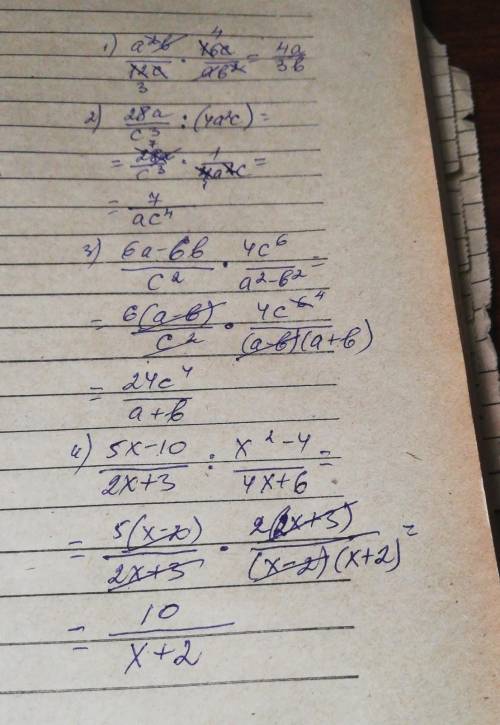 1) a²b/12a · 16a/ab² = 4a/3b
2) 28a/c³ : (4a²c) =
= 28a/c³ · 1/4a²c =
= 7/ac⁴
3) 6a-6b/c² · 4c⁶/a²-b² =
= 6(a-b)/c² · 4c⁶ ⁴/(a-b)(a+b)
= 24c⁴/a+b
4) 5x-10/2x+3 : x²-4/4x+6 =
= 5(x-2)/2x+3 · 2(2x+3)/(x-2)(x+2) =
= 10/x+2